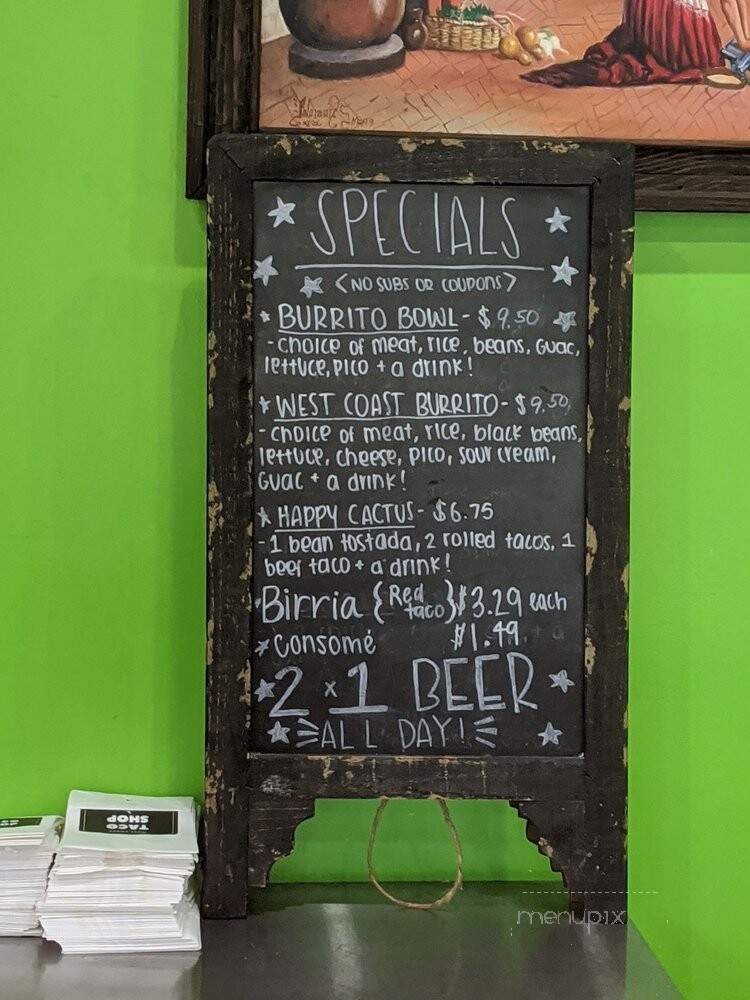 SPECIALS
<NO SUBS OR COUPONS>
BURRITO BOWL - $9.50
- choice of meat, rice, beans, guac,
lettuce, pico + a drink!
WEST COAST BURRITO - $9.50
- choice of meat, rice, black beans,
lettuce, cheese, pico, sour cream,
guac + a drink!
HAPPY CACTUS - $6.75
- 1 bean tostada, 2 rolled tacos, 1
beef taco + a drink!
Birria {Red taco} $3.29 each
consomé $1.49
2 x 1 BEER
ALL DAY!
TACO
SHOP
menupix